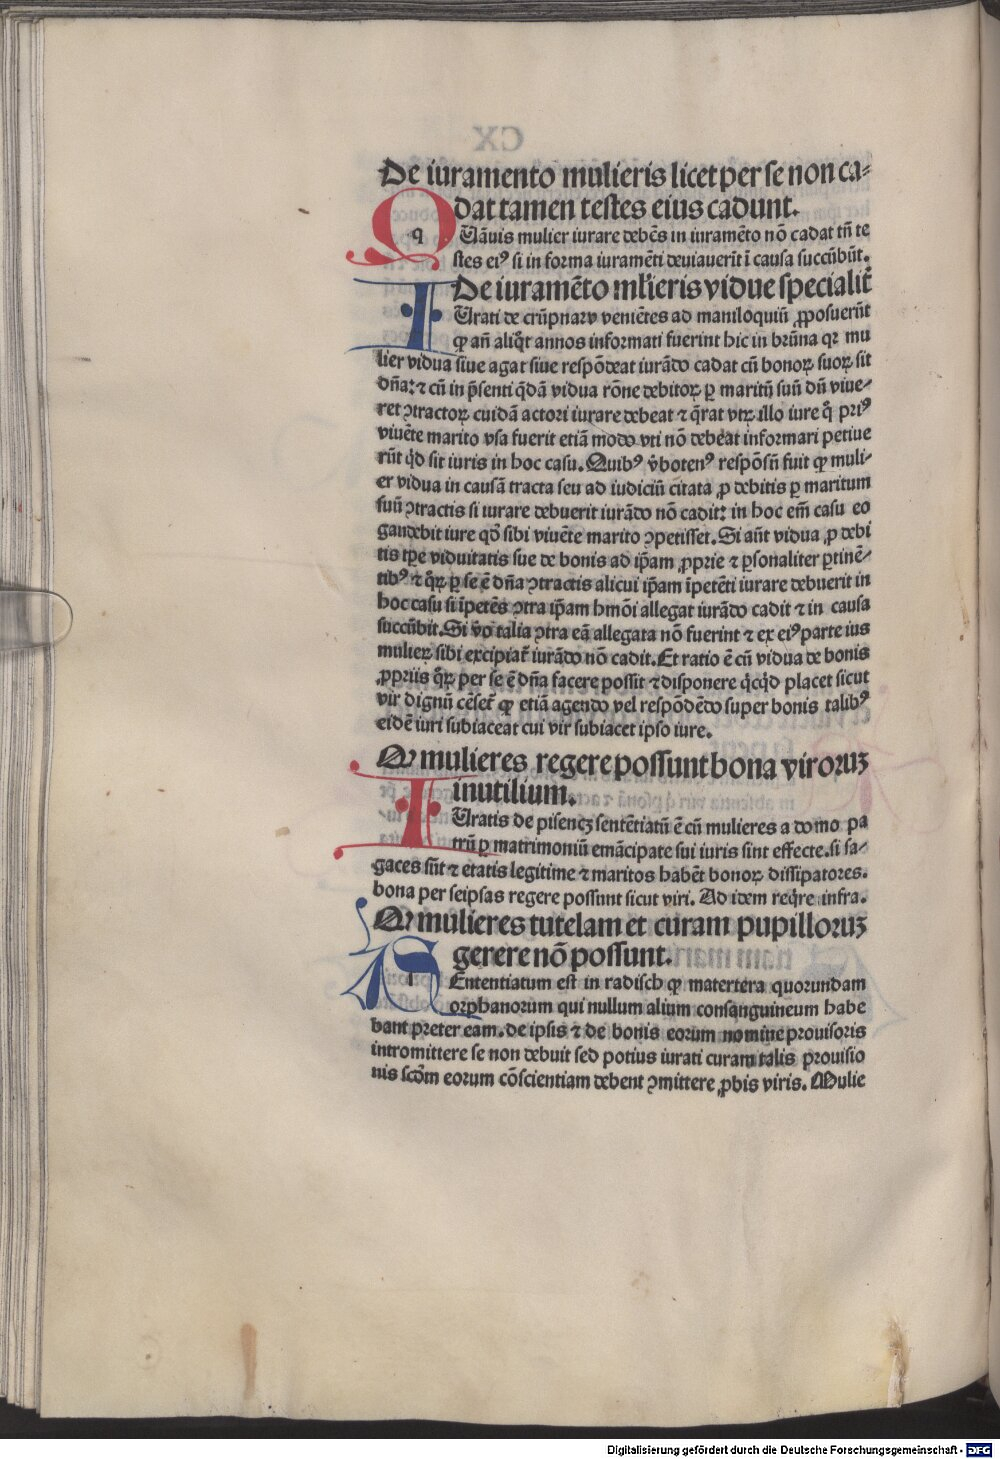 De iuramento mulieris licet per se non ca-
dat tamen testes eius cadunt.
QUãuis mulier iurare debẽs in iuramẽto nõ cadat tñ te
stes ei⁹ si in forma iuramẽti deuiauerit ĩ causa succũbũt.
De iuramẽto mlieris vidue specialiť
IUrati de crũpnaw veniẽtes ad maniloquiũ ꝓposuerũt
ꝙ añ aliq̃t annos informati fuerint hic in brũna qꝛ mu
lier vidua siue agat siue respõdeat iurãdo cadat cũ bonoꝝ suoꝝ sit
dña: ⁊ cũ in p̃senti q̃dã vidua rõne debitoꝝ ꝑ maritũ suũ dũ viue-
ret ɔtractoꝝ cuidã actori iurare debeat ⁊ q̃rat vtꝝ illo iure q̃ pri⁹
viuẽte marito vsa fuerit etiã modo vti nõ debeat informari petiue
rũt q̃d sit iuris in hoc casu. Quib⁹ v̉boten⁹ respõsũ fuit ꝙ muli-
er vidua in causã tracta seu ad iudiciũ citata ꝓ debitis ꝑ maritum
suũ ɔtractis si iurare debuerit iurãdo nõ cadit: in hoc em̃ casu eo
gaudebit iure qđ sibi viuẽte marito ɔpetisset. Si aũt vidua ꝓ debi
tis tp̃e viduitatis sue de bonis ad ip̃am ꝓprie ⁊ ꝑsonaliter ꝑtinẽ-
tib⁹ ⁊ q̃ꝝ ꝑ se ẽ dña ɔtractis alicui ip̃am ĩpetẽti iurare debuerit in
hoc casu si ĩpetẽs ɔtra ip̃am hmõi allegat iurãdo cadit ⁊ in causa
succũbit. Si v̉o talia ɔtra eã allegata nõ fuerint ⁊ ex ei⁹ parte ius
mulieꝝ sibi excipiať iurãdo nõ cadit. Et ratio ẽ cũ vidua de bonis
ꝓpriis q̃ꝝ per se ẽ dña facere possit ⁊ disponere q̃cq̃d placet sicut
vir dignũ cẽseť ꝙ etiã agendo vel respõdẽdo super bonis talib⁹
eidẽ iuri subiaceat cui vir subiacet ipso iure.
Ꝙ mulieres regere possunt bona viroruꝫ
inutilium.
IUratis de pisencꝫ sentẽtiatũ ẽ cũ mulieres a domo pa
trũ ꝑ matrimoniũ emãcipate sui iuris sint effecte. si sa-
gaces sũt ⁊ etatis legitime ⁊ maritos habẽt bonoꝝ dissipatores.
bona per seipsas regere possunt sicut viri. Ad idem req̃re infra.
Ꝙ mulieres tutelam et curam pupilloruꝫ
gerere nõ possunt.
SEntentiatum est in radisch ꝙ matertera quorundam
orphanorum qui nullum alium consanguineum habe
bant preter eam. de ipsis ⁊ de bonis eorum nomine prouisoris
intromittere se non debuit sed potius iurati curam talis prouisio
nis scđm eorum cõscientiam debent ɔmittere ꝓbis viris. Mulie
Digitalisierung gefördert durch die Deutsche Forschungsgemeinschaft - DFG